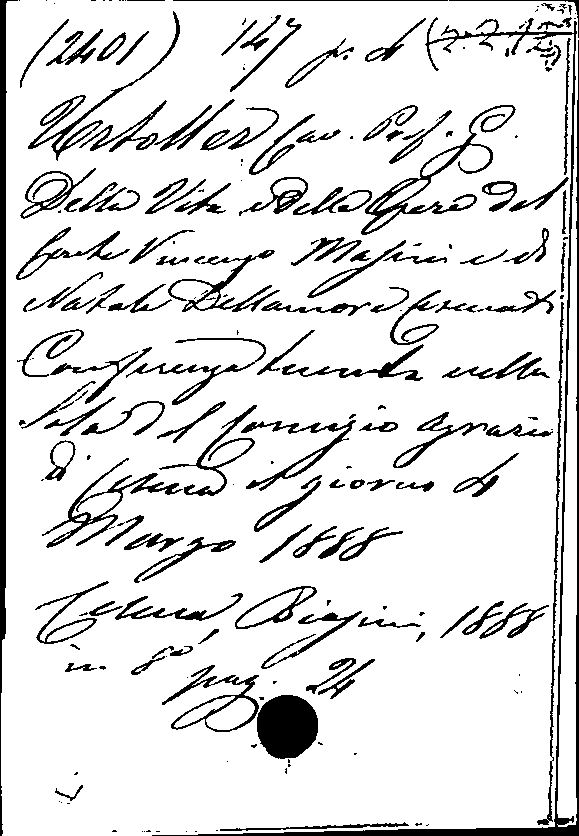 (2401) 147 p. d
Urtoller Cav. Prof. G.
Della Vita e delle Opere del
Conte Vincenzo Masini e di
Natale Dellamore Cesenati
Conferenza tenuta nella
Sala del Comizio Agrario
di Cesena il giorno 4
Marzo 1888
Cesena, Biasini, 1888
in 8º, pag. 24